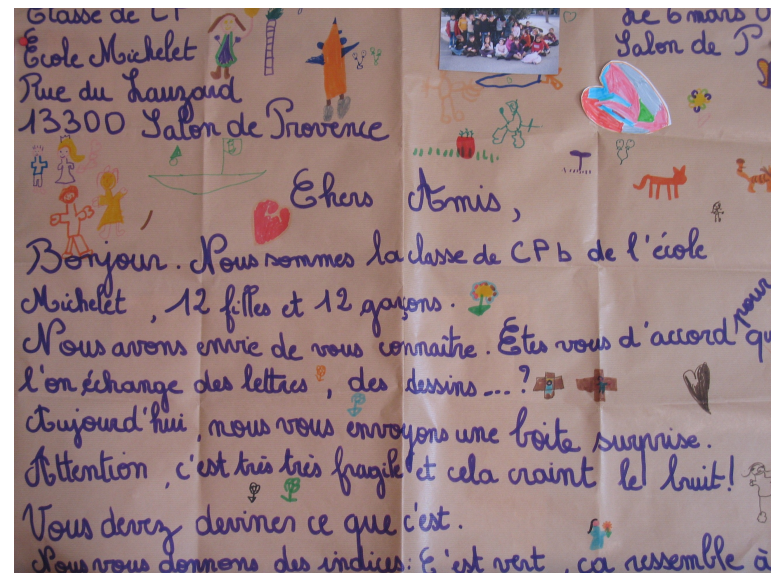 Classe de CP
École Michelet
Rue du Lauzard
13300 Salon de Provence
Le 6 mars 0
Salon de P
Chers Amis,
Bonjour. Nous sommes la classe de CPb de l'école
Michelet, 12 filles et 12 garçons.
Nous avons envie de vous connaître. Êtes vous d'accord pour qu
l'on échange des lettres, des dessins...?
Aujourd'hui, nous vous envoyons une boite surprise.
Attention, c'est très très fragile et cela craint le bruit!
Vous devez deviner ce que c'est.
Nous vous donnons des indices: C'est vert, ça ressemble à